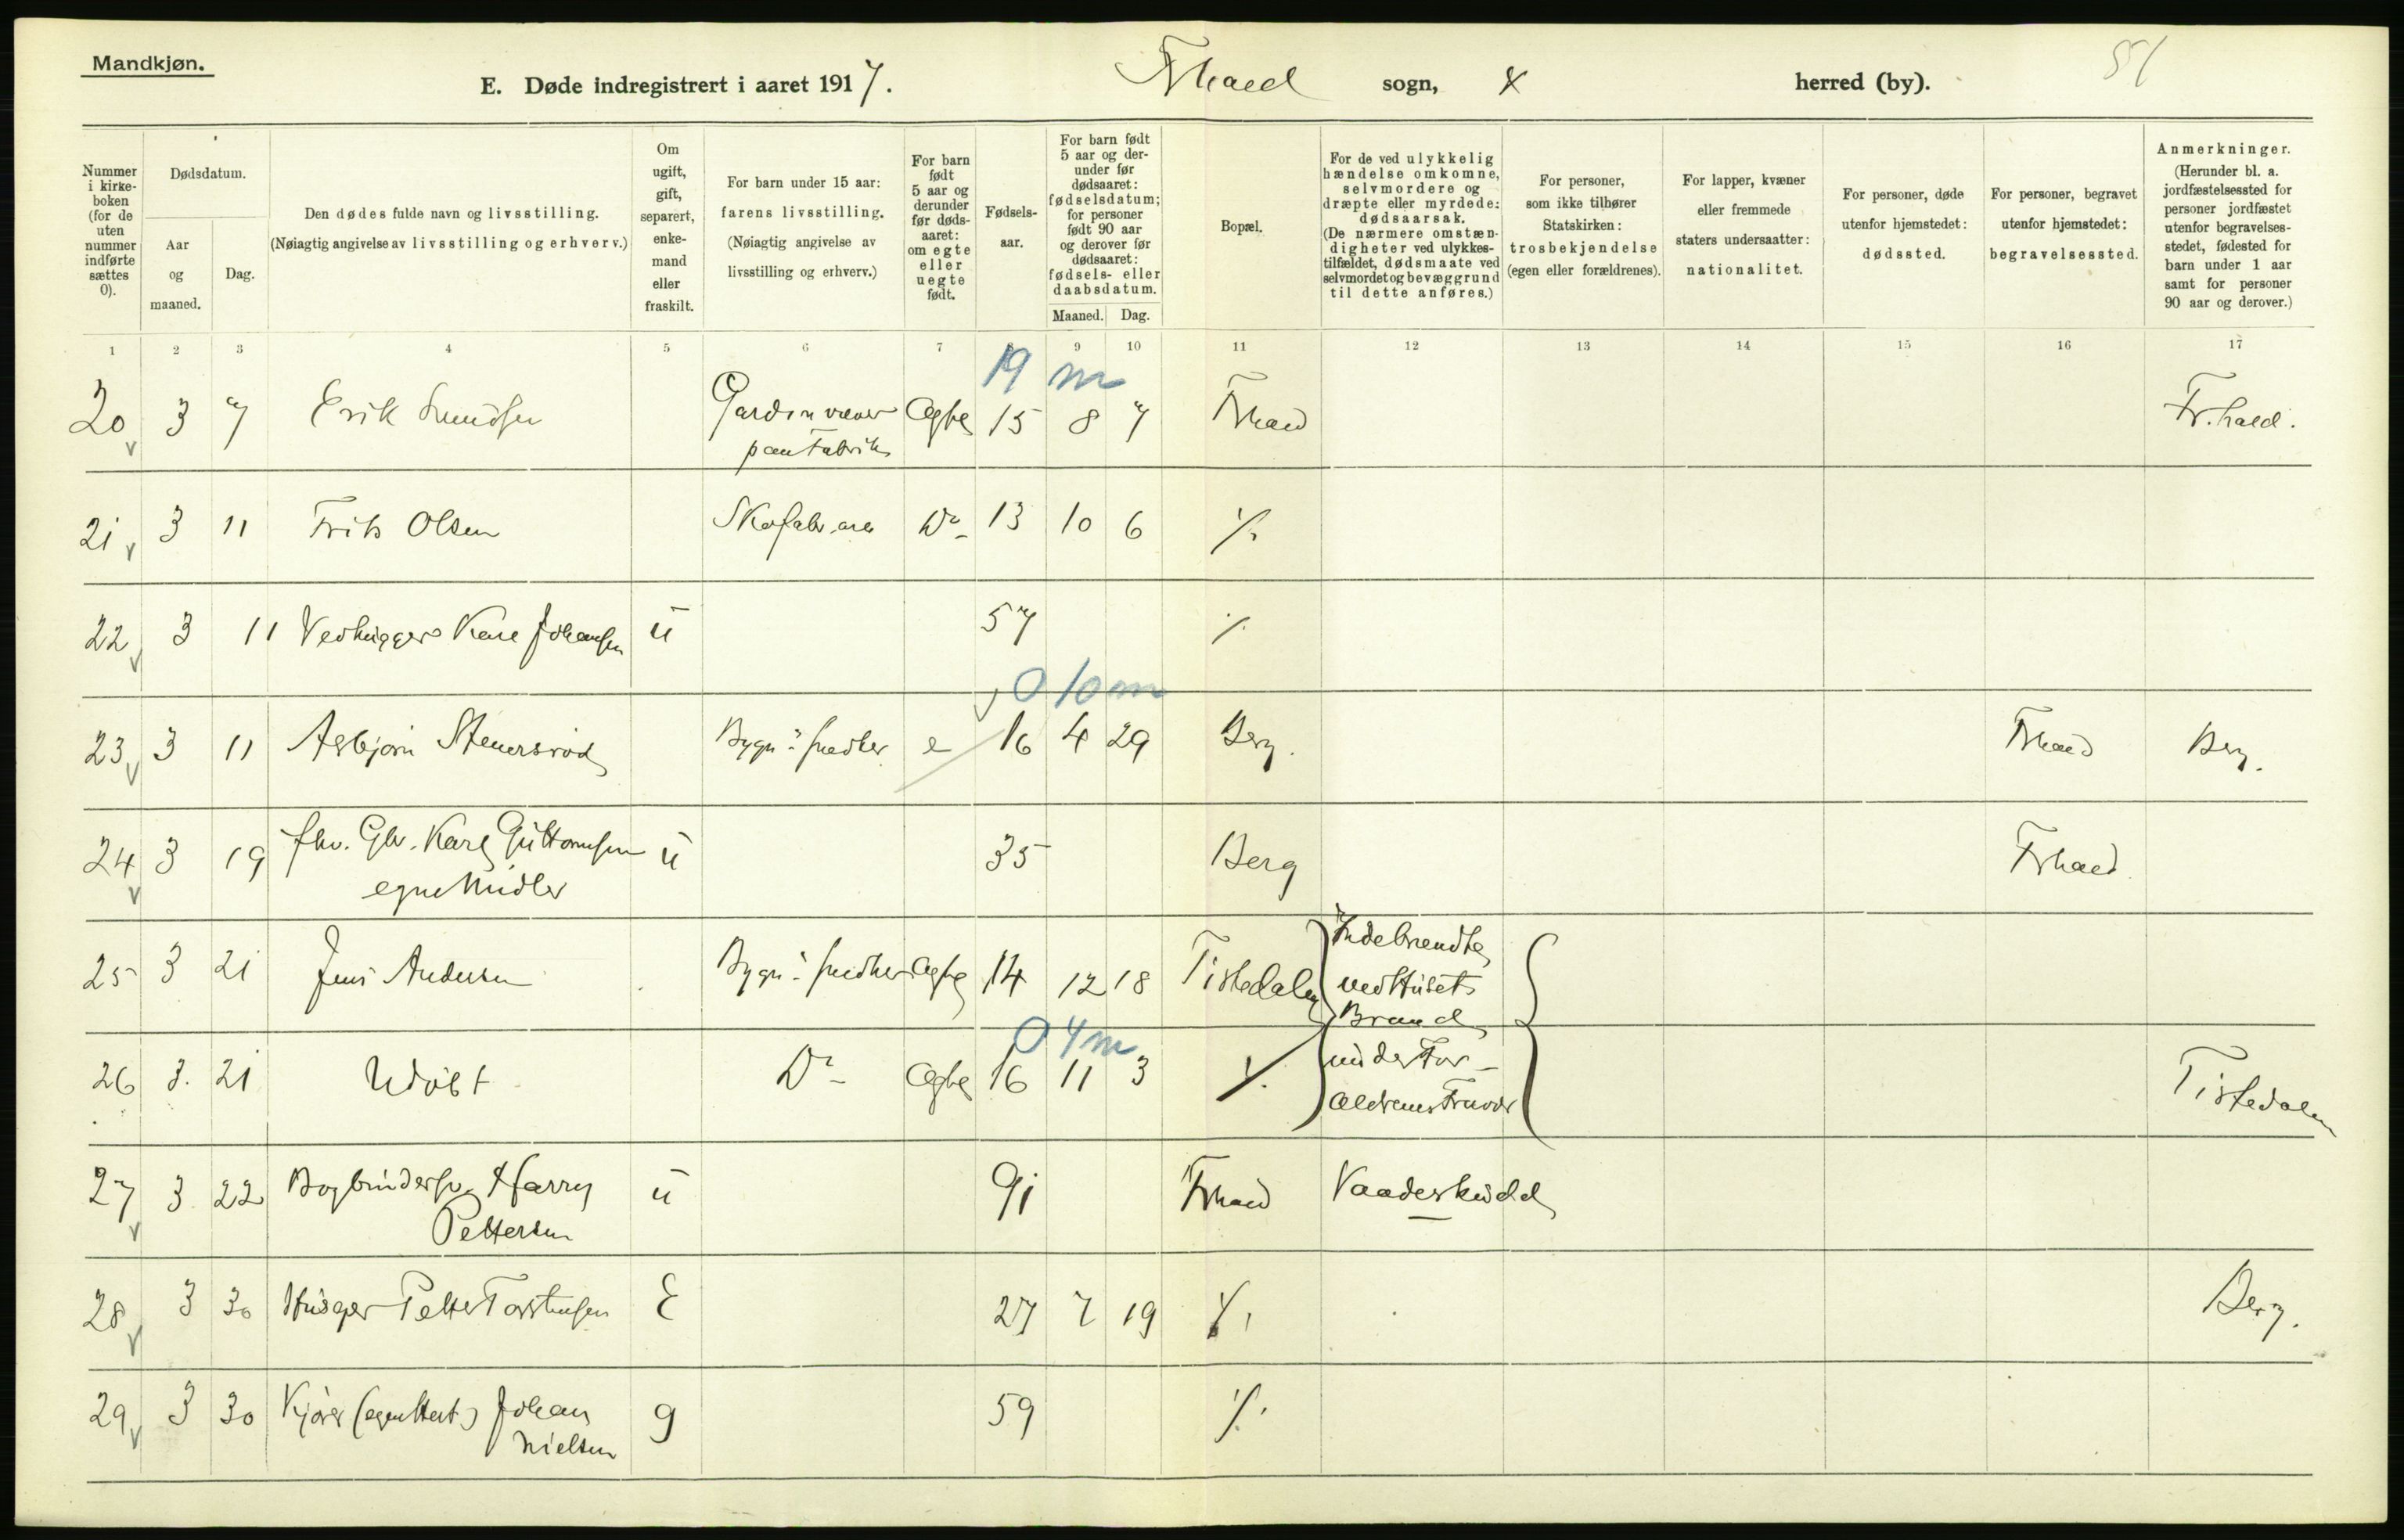 Mandkjøn.
E. Døde indregistrert i aaret 1917. Frhald sogn, herred (by). 51
Nummer i kirke-boken (for de uten nummer indførte sættes 0).
Dødsdatum.
Aar og maaned.
Dag.
Den dødes fulde navn og livsstilling.
(Nøiagtig angivelse av livsstilling og erhverv.)
Om ugift, gift, separert, enke-mand eller fraskilt.
For barn under 15 aar: farens livsstilling. (Nøiagtig angivelse av livsstilling og erhverv.)
For barn født 5 aar og derunder før døds-aaret: om egte eller uegte født.
Fødsels-aar.
For barn født 5 aar og der-under før dødsaaret: fødselsdatum; for personer født 90 aar og derover før dødsaaret: fødsels- eller daabsdatum.
Maaned. Dag.
Bopæl.
For de ved ulykkelig hændelse omkomne, selvmordere og dræpte eller myrdede: dødsaarsak. (De nærmere omstæn-digheter ved ulykkes-tilfældet, dødsmaate ved selvmordet og bevæggrund til dette anføres.)
For personer, som ikke tilhører Statskirken: trosbekjendelse (egen eller forældrenes).
For lapper, kvæner eller fremmede staters undersaatter: nationalitet.
For personer, døde utenfor hjemstedet: dødssted.
For personer, begravet utenfor hjemstedet: begravelsessted.
Anmerkninger. (Herunder bl. a. jordfæstelsessted for personer jordfæstet utenfor begravelses-stedet, fødested for barn under 1 aar samt for personer 90 aar og derover.)
1 2 3 4 5 6 7 8 9 10 11 12 13 14 15 16 17
19 m
20 3 7 Erik Knudsen Ægte 15 8 7 Frhald Fr.hald.
21 3 11 Frits Olsen Skofabr.arb Do 13 10 6 ⁒
22 3 11 Vedhugger Karl Johansen u 57 ⁒
0 10 m
23 3 11 Asbjørn Stenersrød Bygn.snedker e 16 4 29 Berg. Frhald Berg.
24 3 19 fhv. Gbr. Karl Guttormsen u 35 Berg Frhald
egne Midler
25 3 21 Jens Andersen Bygn.snedker Ægte 14 12 18 Tistedalen Indebrendte
ved Husets
Brand
0 4 m
26 3. 21 Udøbt Do Ægte 16 11 3 ⁒ under For-
ældrenes Fravær Tistedalen
27 3 22 Bogbindersv. Harry u 91 Frhald Vaadeskudd
Pettersen
28 3 30 Huseier Petter Torstensen E 27 7 19 ⁒ Berg.
29 3 30 Kjører (egen Hest) Johan g 59 ⁒
Nielsen